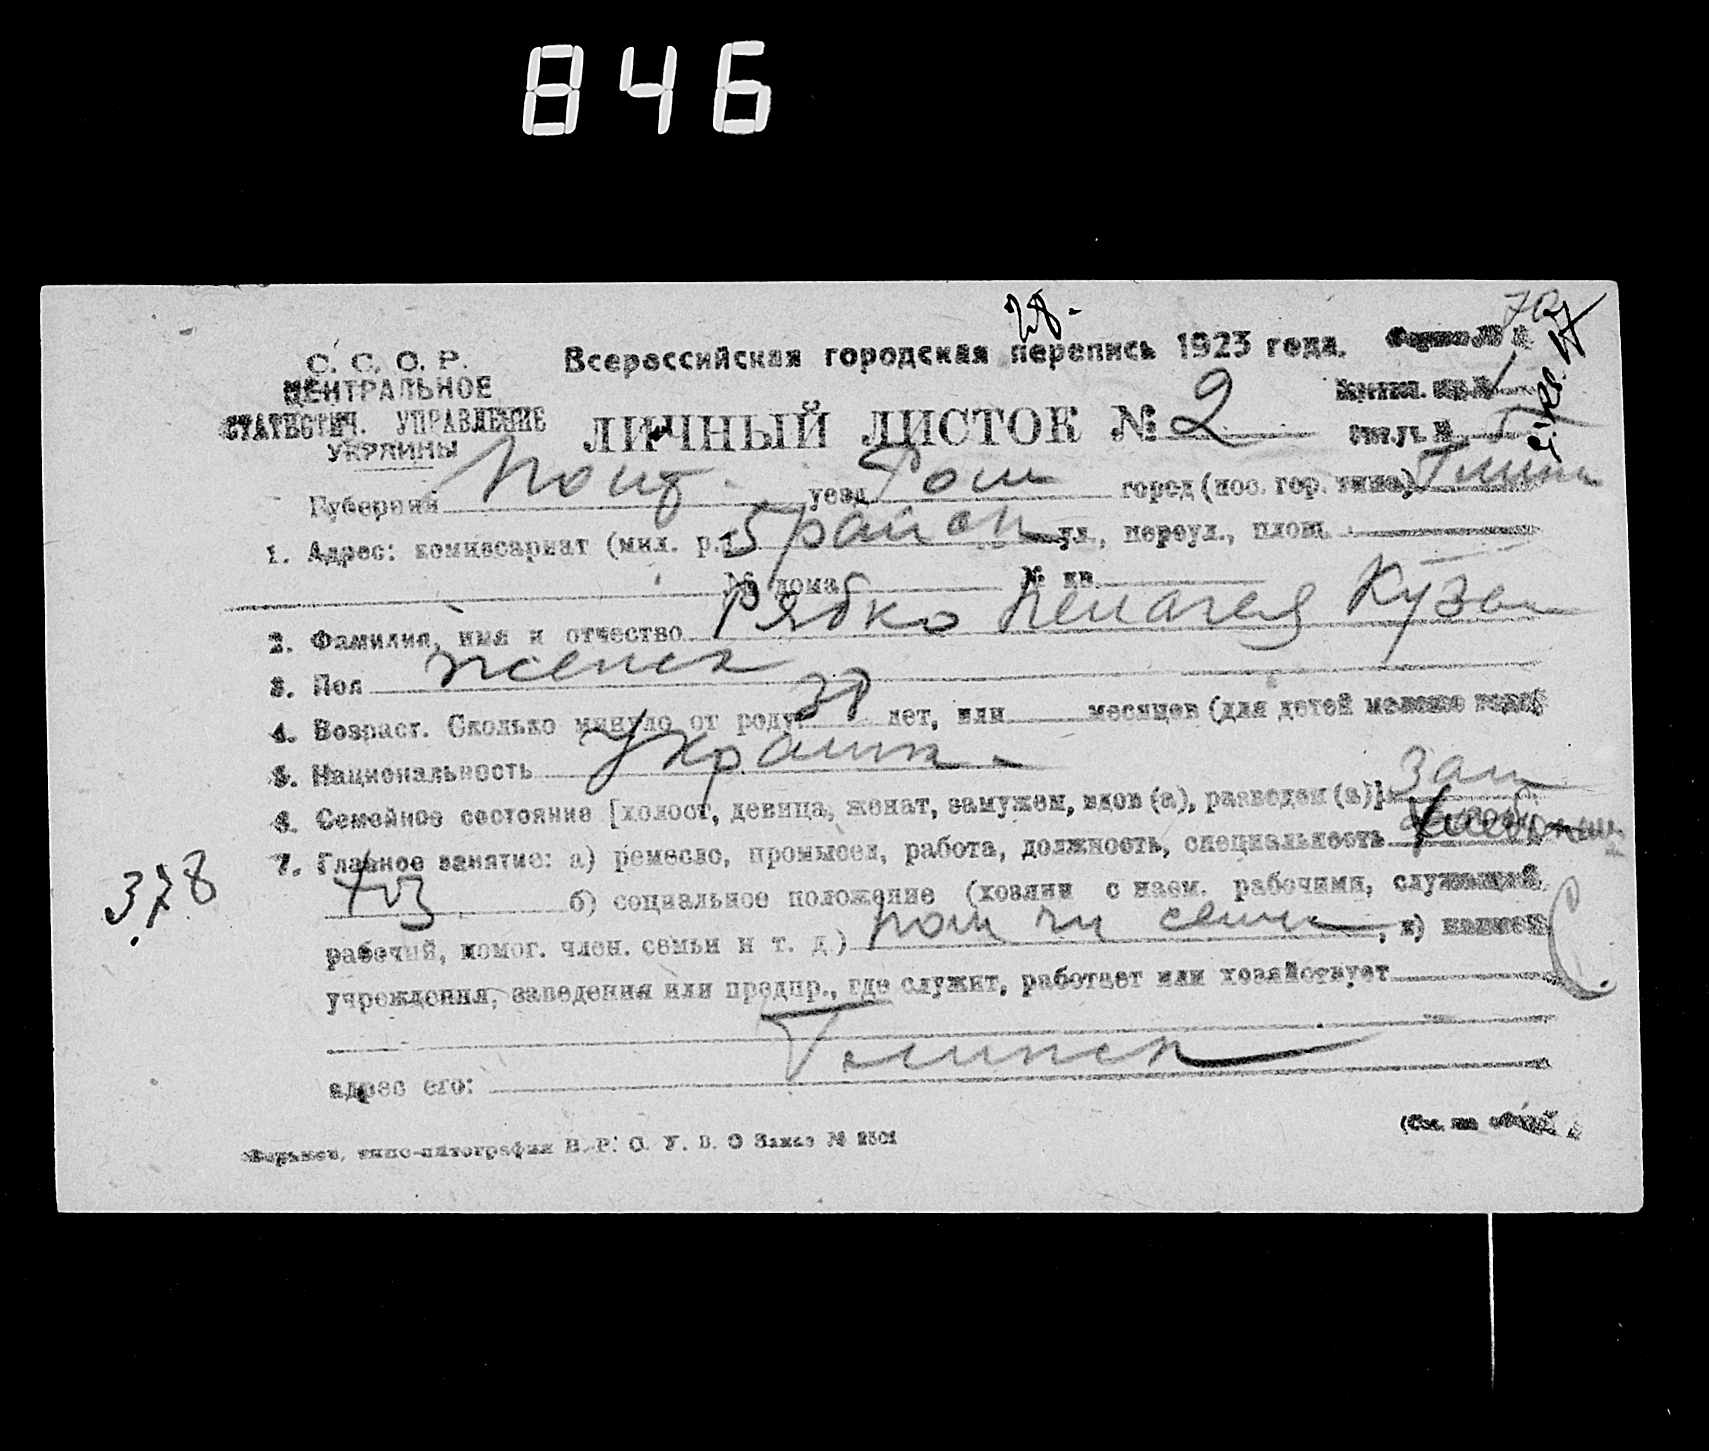 846
28.
Всероссийская городская перепись 1923 года.
С. С. О. Р.
ЦЕНТРАЛЬНОЕ
СТАТИСТИЧ. УПРАВЛЕНИЕ
УКРАИНЫ
ЛИЧНЫЙ ЛИСТОК № 2
Губерния Полт. уезд Ром город (пос. гор. типа)
1. Адрес: комиссариат (мил. р.) 5 район ул., переул., площ.
№ дома № кв.
2. Фамилия, имя и отчество Рябко Пелагея Кузьм
3. Пол женск
4. Возраст. Сколько минуло от роду лет, или месяцев (для детей моложе года)
5. Национальность Украинк
6. Семейное состояние [холост, девица, женат, замужем, вдов (а), разведен (а)] Зам
7. Главное занятие: а) ремесло, промысел, работа, должность, специальность
378
б) социальное положение (хозяин с наем. рабочими, служащий,
рабочий, помог. член. семьи и т. д.) пом чл семьи, в) наимен.
учреждения, заведения или предпр., где служит, работает или хозяйствует
адрес его: Глинск
Харьков, типо-литография В. Заказ №
(См. на обор.)